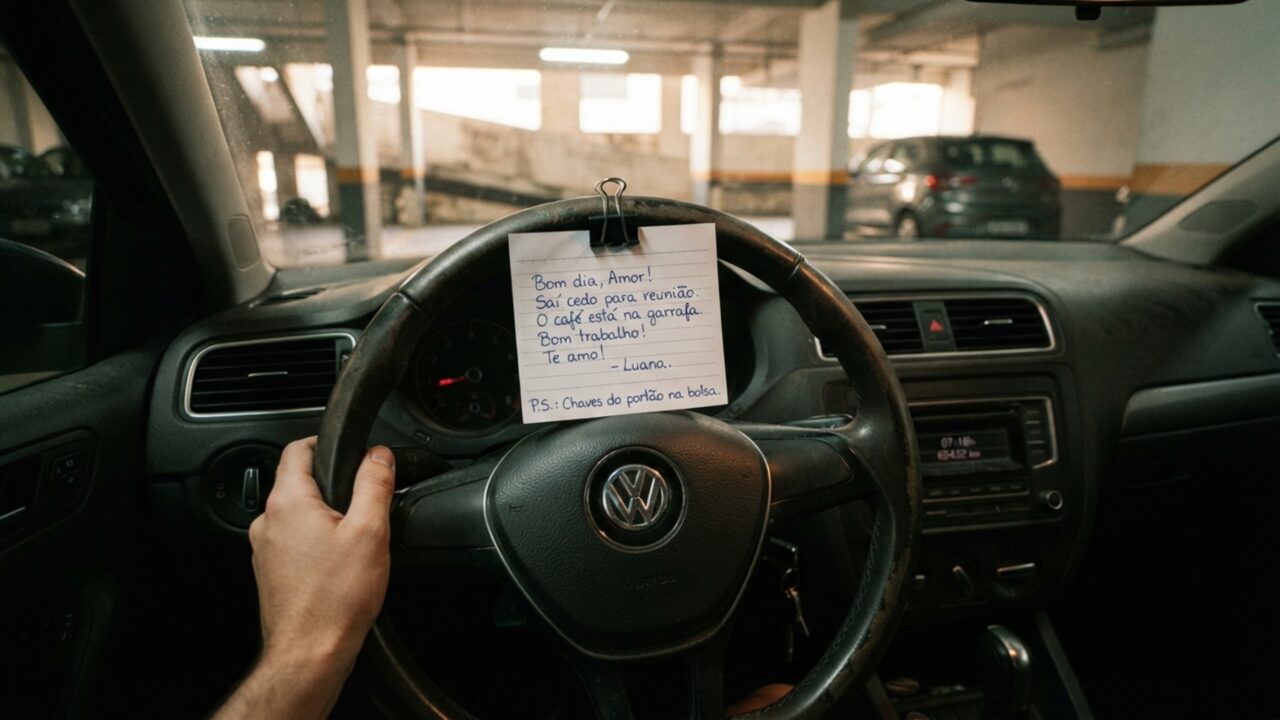 Bom dia, Amor!
Saí cedo para reunião.
O café está na garrafa.
Bom trabalho!
Te amo!
– Luana.
P.S.: Chaves do portão na bolsa.
VW